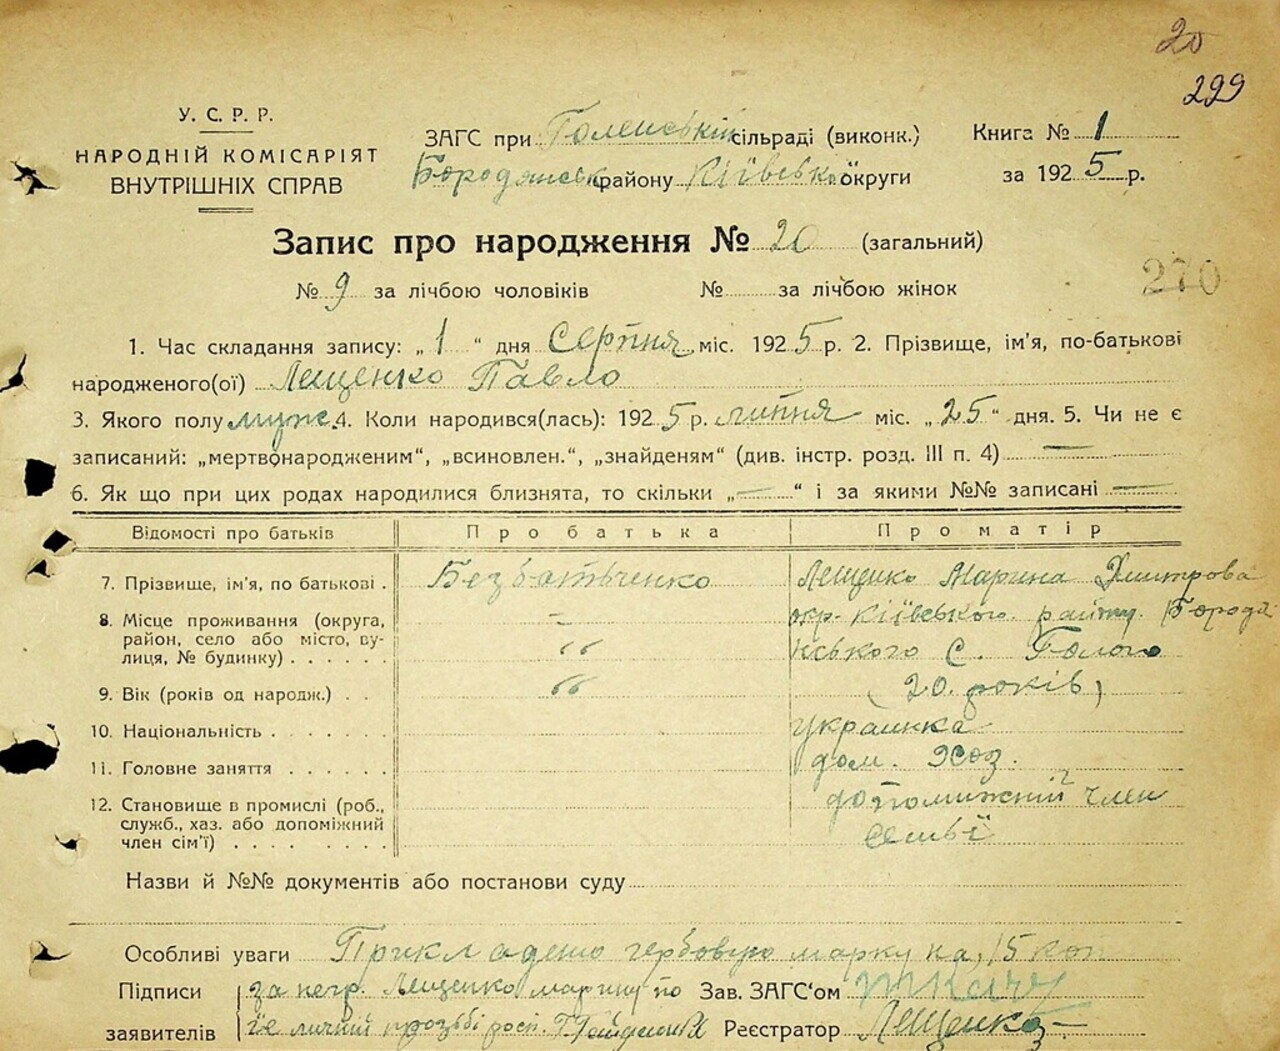 20
299
У. С. Р. Р.
НАРОДНІЙ КОМІСАРІЯТ
ВНУТРІШНІХ СПРАВ
ЗАГС при Голенській сільраді (виконк.)
Бородянськ. району Київської округи
Книга № 1
за 1925 р.
Запис про народження № 20 (загальний)
270
№ 9 за лічбою чоловіків № за лічбою жінок
1. Час складання запису: „ 1 “ дня Серпня міс. 1925 р. 2. Прізвище, ім'я, по-батькові
народженого(ої) Лещенко Павло
3. Якого полу муж. 4. Коли народився(лась): 1925 р. липня міс. „ 25 “ дня. 5. Чи не є
записаний: „мертвонародженим“, „всиновлен.“, „знайденям“ (див. інстр. розд. III п. 4) —
6. Як що при цих родах народилися близнята, то скільки „ — “ і за якими №№ записані —
Відомості про батьків Про батька Про матір
7. Прізвище, ім'я, по батькові . Безбатьченко Лещенко Марина Дмитрова
8. Місце проживання (округа, окр. Київського району Бородя
район, село або місто, ву-
лиця, № будинку) . . . . . . нського С.
9. Вік (років од народж.) . . (20 років)
10. Національність . . . . . . . украинка
11. Головне заняття . . . . . . дом. хоз.
12. Становище в промислі (роб., допомижний член
служб., хаз. або допоміжний
член сім'ї) . . . . . . . . . семьї
Назви й №№ документів або постанови суду
Особливі уваги Прикладено гербовую марку на 15 коп
Підписи за негр. Лещенко марину по Зав. ЗАГС'ом
заявителів її личній прозьбі росп. Реєстратор Лещенко